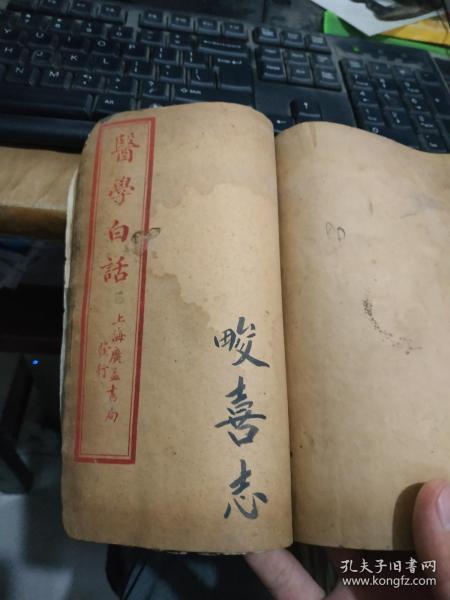 醫學白話
上海廣益書局
發行
畯喜志
孔夫子旧书网
www.kongfz.com